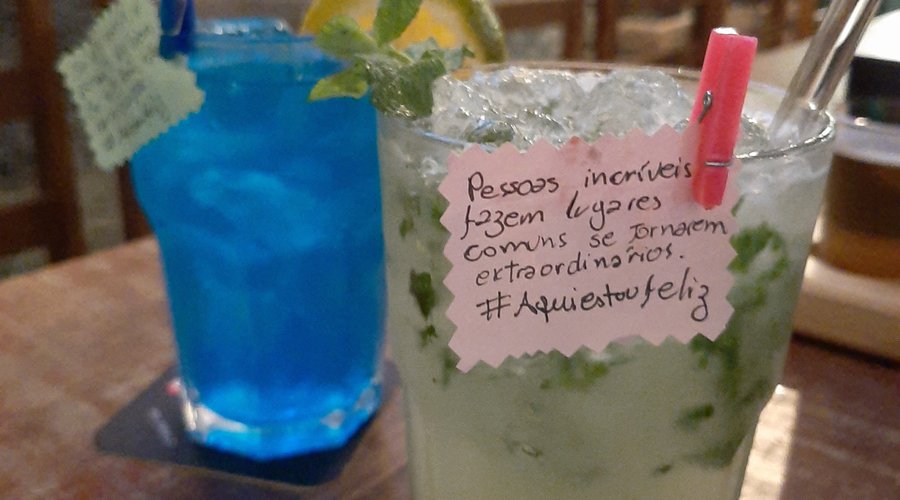 Pessoas incríveis
fazem lugares
comuns se tornarem
extraordinários.
#Aquiestoufeliz